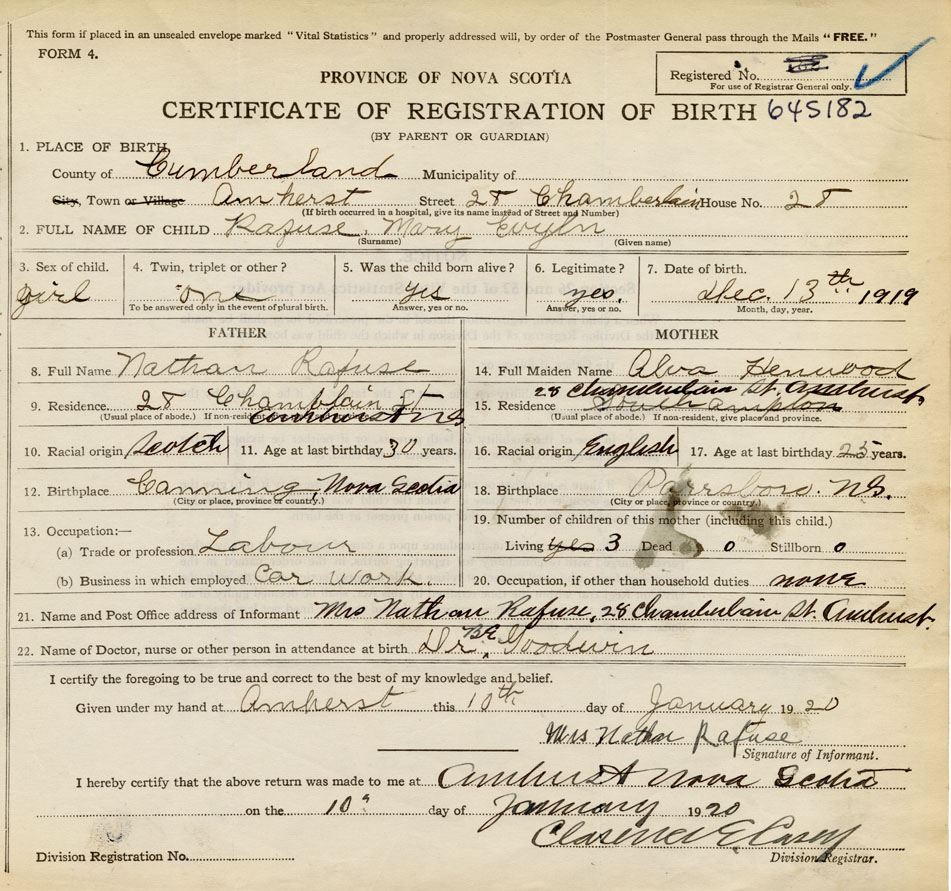 This form if placed in an unsealed envelope marked "Vital Statistics" and properly addressed will, by order of the Postmaster General pass through the Mails "FREE."
FORM 4.
PROVINCE OF NOVA SCOTIA
Registered No.
For use of Registrar General only.
CERTIFICATE OF REGISTRATION OF BIRTH 645182
(BY PARENT OR GUARDIAN)
1. PLACE OF BIRTH
County of Cumberland Municipality of
City, Town or Village Amherst Street 28 Chamberlain House No. 28
(If birth occurred in a hospital, give its name instead of Street and Number)
2. FULL NAME OF CHILD Rafuse, Mary Evyln
(Surname) (Given name)
3. Sex of child. 4. Twin, triplet or other? 5. Was the child born alive? 6. Legitimate? 7. Date of birth.
girl one yes yes. Dec. 13th 1919
To be answered only in the event of plural birth. Answer, yes or no. Answer, yes or no. Month, day, year.
FATHER MOTHER
8. Full Name Nathan Rafuse 14. Full Maiden Name Alva Henwood
28 Chamberlain St. Amherst
9. Residence. 28 Chamblain St 15. Residence Southampton
(Usual place of abode.) If non-resident (Usual place of abode.) If non-resident, give place and province.
10. Racial origin Scotch 11. Age at last birthday 30 years. 16. Racial origin English 17. Age at last birthday 25 years.
12. Birthplace Canning, Nova Scotia 18. Birthplace Parrsboro. N.S.
(City or place, province or country.) (City or place, province or country.)
13. Occupation:— 19. Number of children of this mother (including this child.)
(a) Trade or profession Labour Living yes 3 Dead 0 Stillborn 0
(b) Business in which employed Car work. 20. Occupation, if other than household duties none
21. Name and Post Office address of Informant Mrs Nathan Rafuse, 28 Chamberlain St. Amherst.
22. Name of Doctor, nurse or other person in attendance at birth Dr. Goodwin
I certify the foregoing to be true and correct to the best of my knowledge and belief.
Given under my hand at Amherst this 10th day of January 1920
Mrs Nathan Rafuse
Signature of Informant.
I hereby certify that the above return was made to me at Amherst Nova Scotia
on the 10 day of January 1920
Clarence E. Casey
Division Registration No. Division Registrar.